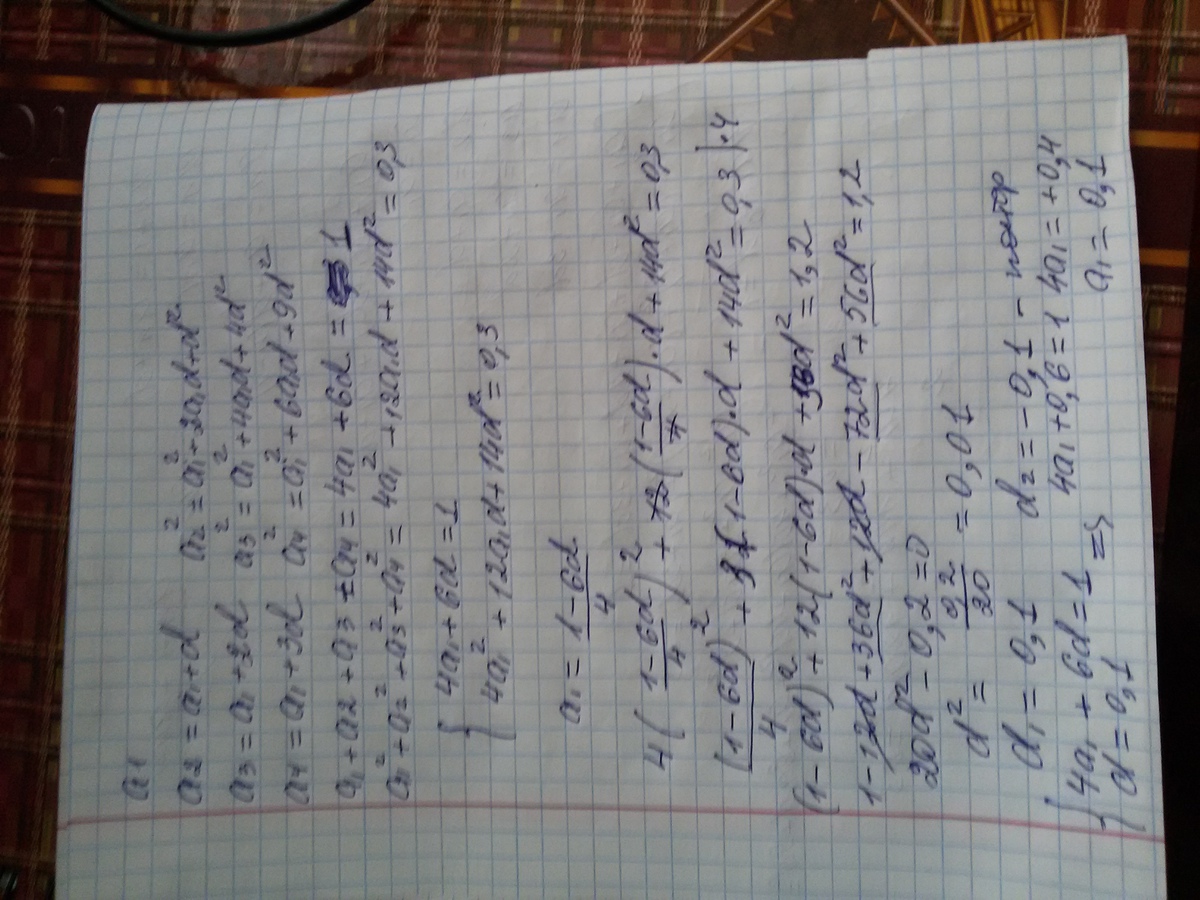 a1
a2 = a1+d a2² = a1²+2a1d+d²
a3 = a1+2d a3² = a1²+4a1d+4d²
a4 = a1+3d a4² = a1²+6a1d+9d²
a1+a2+a3+a4 = 4a1+6d = 1
a1²+a2²+a3²+a4² = 4a1²+12a1d+14d² = 0,3
{ 4a1+6d=1
4a1²+12a1d+14d²=0,3
a1 = (1-6d)/4
4((1-6d)/4)² + 12((1-6d)/4)·d+14d²=0,3
(1-6d)²/4 + 3(1-6d)·d+14d²=0,3 |·4
(1-6d)²+12(1-6d)·d+56d²=1,2
1-12d+36d²+12d-72d²+56d²=1,2
20d²-0,2=0
d² = 0,2/20 = 0,01
d1 = 0,1 d2 = -0,1 -
{ 4a1+6d=1 => 4a1+0,6=1 4a1=+0,4
d=0,1 a1=0,1